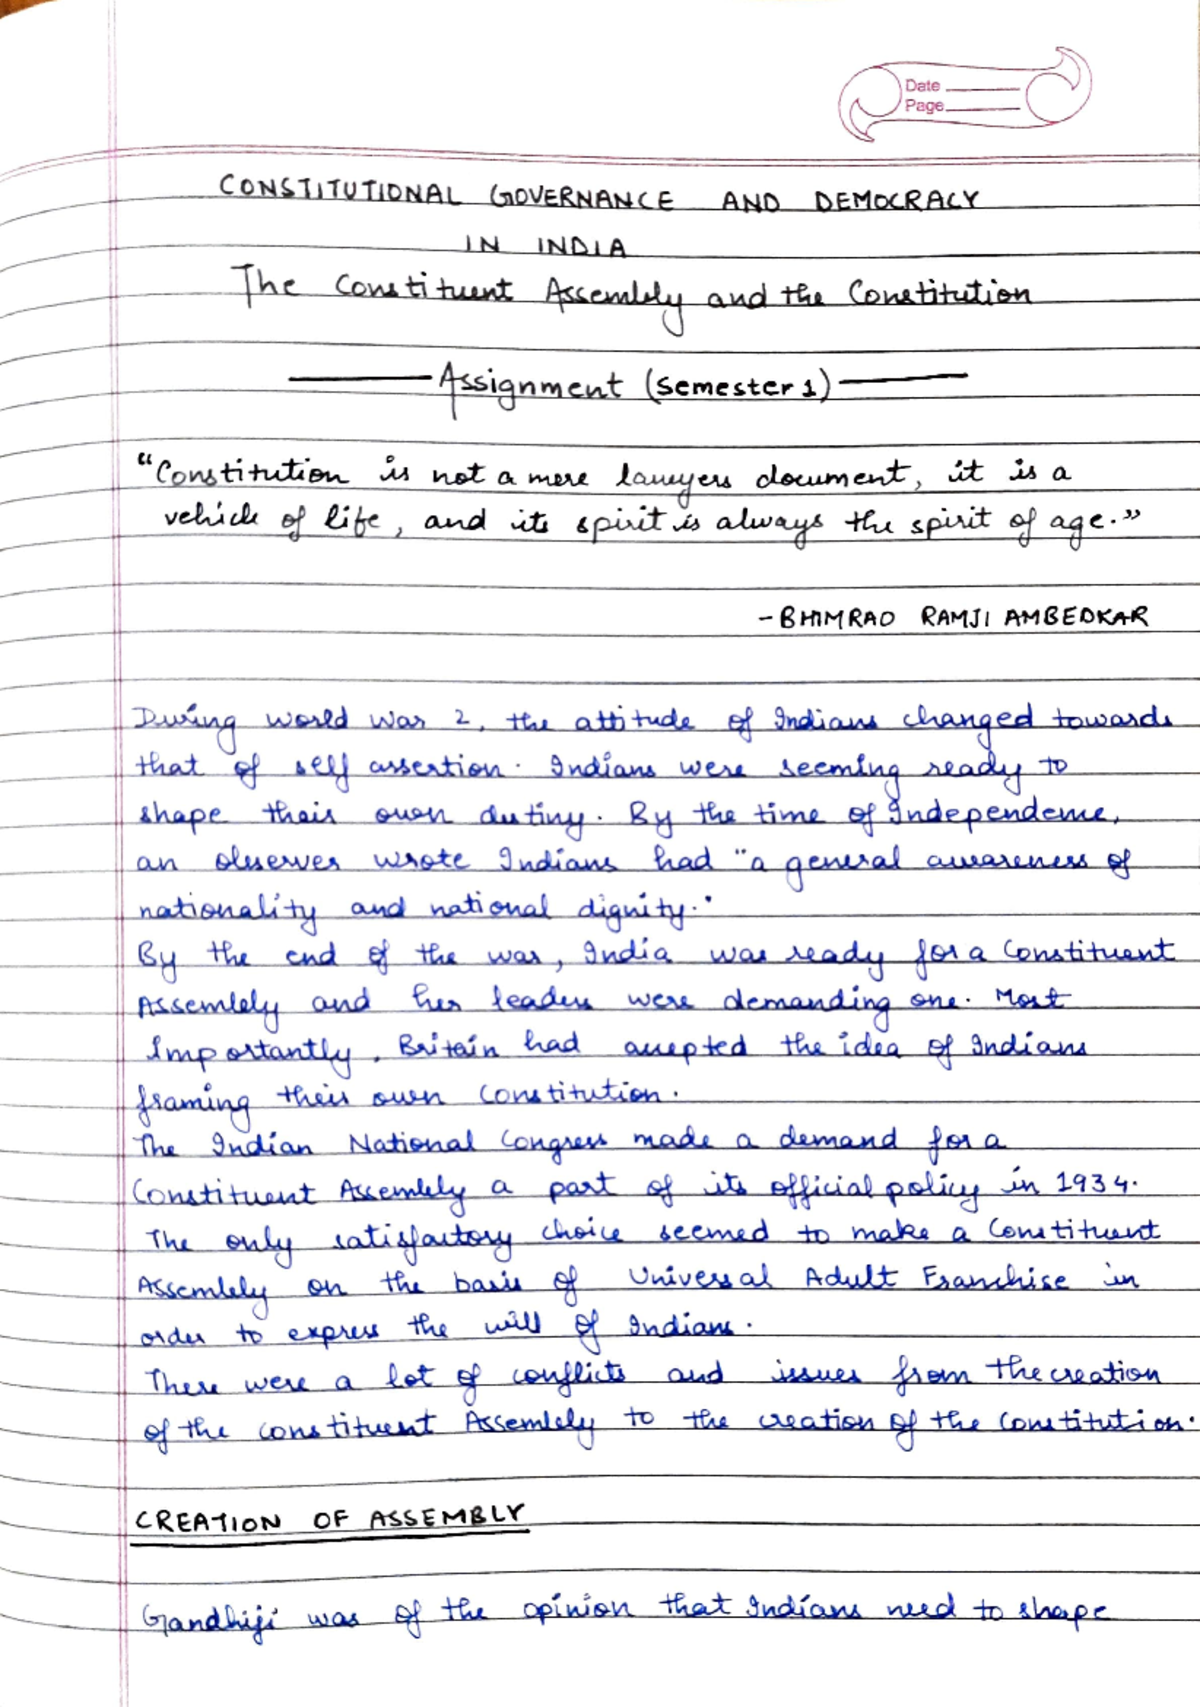 Date
Page
CONSTITUTIONAL GOVERNANCE AND DEMOCRACY
IN INDIA
The Constituent Assembly and the Constitution
Assignment (Semester 1)
"Constitution is not a mere lawyers document, it is a
vehicle of life, and its spirit is always the spirit of age."
- BHIMRAO RAMJI AMBEDKAR
During World War 2, the attitude of Indians changed towards
that of self assertion. Indians were seeming ready to
shape their own destiny. By the time of Independence,
an observer wrote Indians had "a general awareness of
nationality and national dignity."
By the end of the war, India was ready for a Constituent
Assembly and her leaders were demanding one. Most
Importantly, Britain had accepted the idea of Indians
framing their own Constitution.
The Indian National Congress made a demand for a
Constituent Assembly a part of its official policy in 1934.
The only satisfactory choice seemed to make a Constituent
Assembly on the basis of Universal Adult Franchise in
order to express the will of Indians.
There were a lot of conflicts and issues from the creation
of the constituent Assembly to the creation of the Constitution.
CREATION OF ASSEMBLY
Gandhiji was of the opinion that Indians need to shape